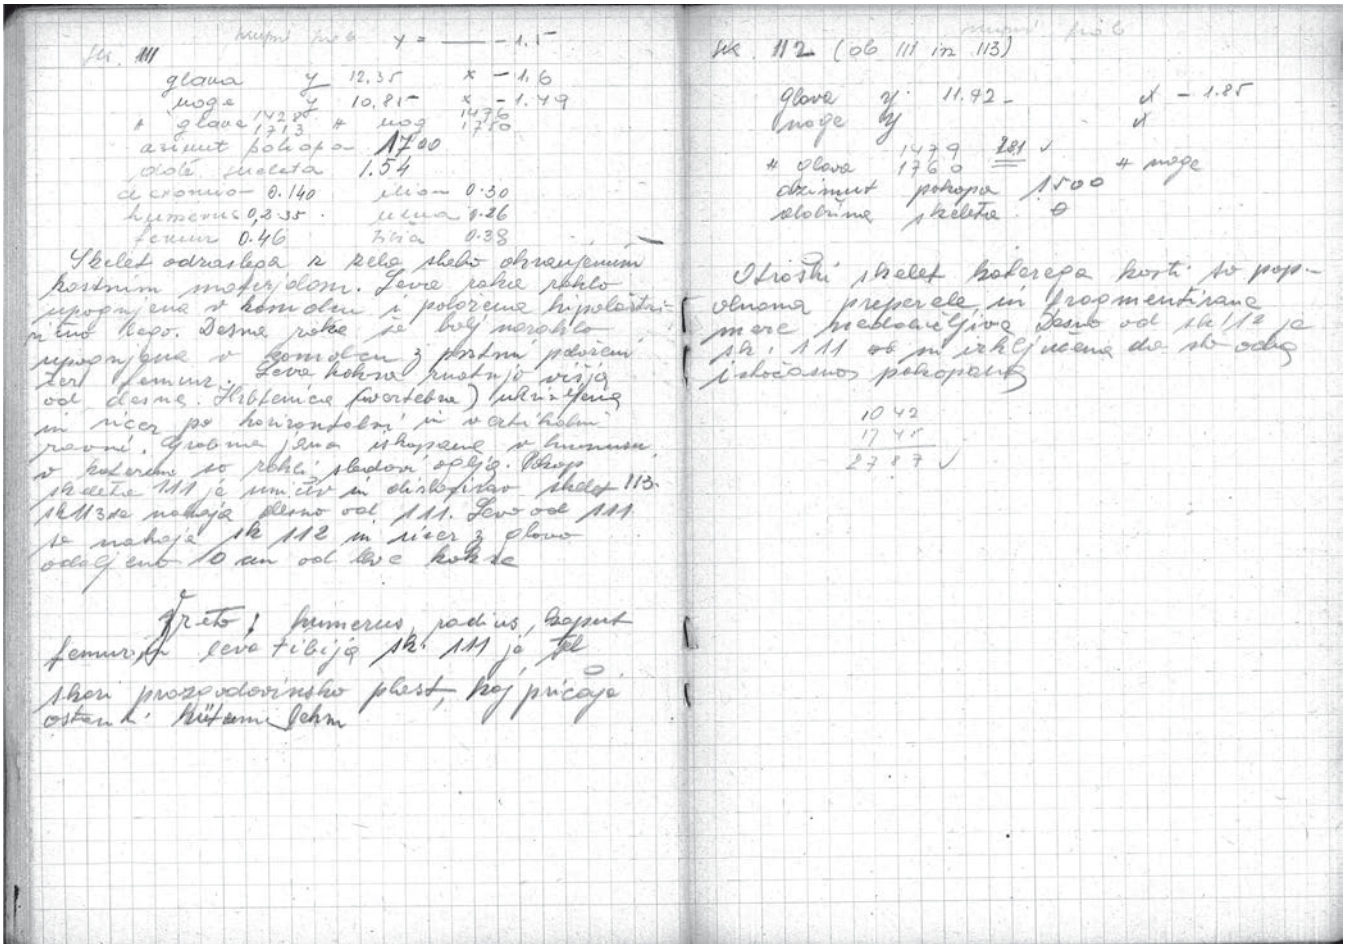 sk. 111 y = — - 1.5
glava y 12.35 x - 1.6
noge y 10.85 x - 1.49
# glave 1428 1713 # nog 1476 1750
azimut pokopa 1700
dolž. skeleta 1.54
acromion 0.140 ilion 0.30
humerus 0,235 ulna 0.26
femur 0.46 tibia 0.38
Skelet odraslega z zelo slabo ohranjenim
kostnim materjalom. Leva roka rahlo
upognjena v komolcu i položena
lego. Desna roka je bolj narahlo
upognjena v komolcu z prstmi
femur. Leva koksa znatnjo višja
od desne. Hrbtenica (vertebra) ukrivljena
in sicer po horizontalni in vertikalni
ravni. Grobna jama iskopana v humusu,
v katerem so rahli sledovi oglja. Pokop
skeleta 111 je uničiv in dislocirav skelet 113.
sk 113 se nahaja desno od 111. Levo od 111
se nahaja sk 112 in sicer z glavo
odaljeno 10 cm od leve kokse
humerus, radius, kaput
femur, leva tibija sk. 111 je
skozi prazgodovinsko plast, kaj pričajo
ostanki Hüttenlehm
sk. 112 (ob 111 in 113)
glava y 11.92 - x - 1.85
noge y x
# glava 1479 1760 281 ✓ # noge
azimut pokopa 1500
dolžina skeleta θ
Otroški skelet katerega kosti so pop-
olnoma preperele in fragmentirane
mere nedoločljive Desno od sk 112 je
sk. 111 in
istočasno pokopana
1042
1745
2787 ✓